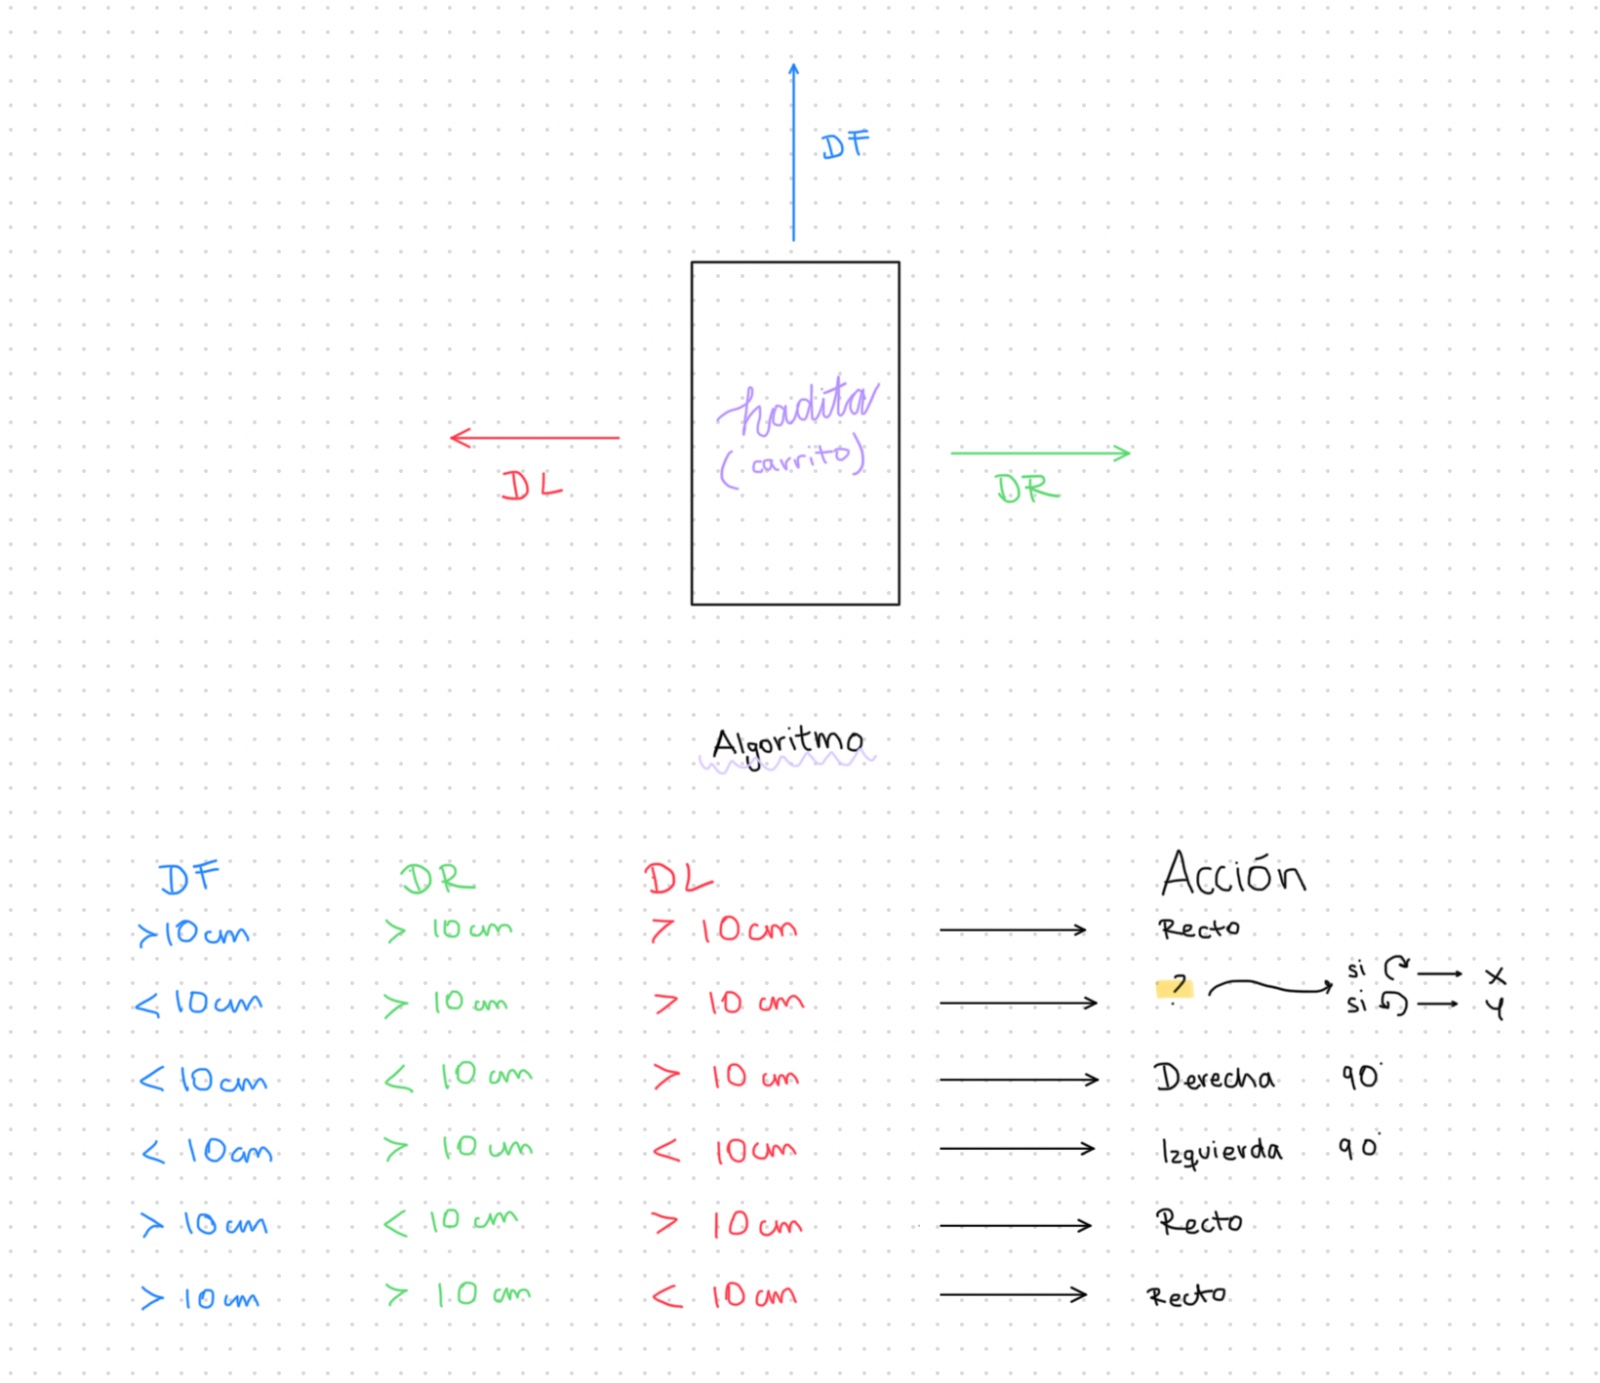 DF
hadita
(carrito)
DL
DR
Algoritmo
DF DR DL Acción
>10cm > 10cm > 10cm Recto
< 10cm > 10cm > 10 cm ? si x
si y
< 10cm < 10 cm > 10 cm Derecha 90°
< 10cm > 10 cm < 10cm Izquierda 90°
> 10cm < 10 cm > 10cm Recto
> 10cm > 10 cm < 10cm Recto